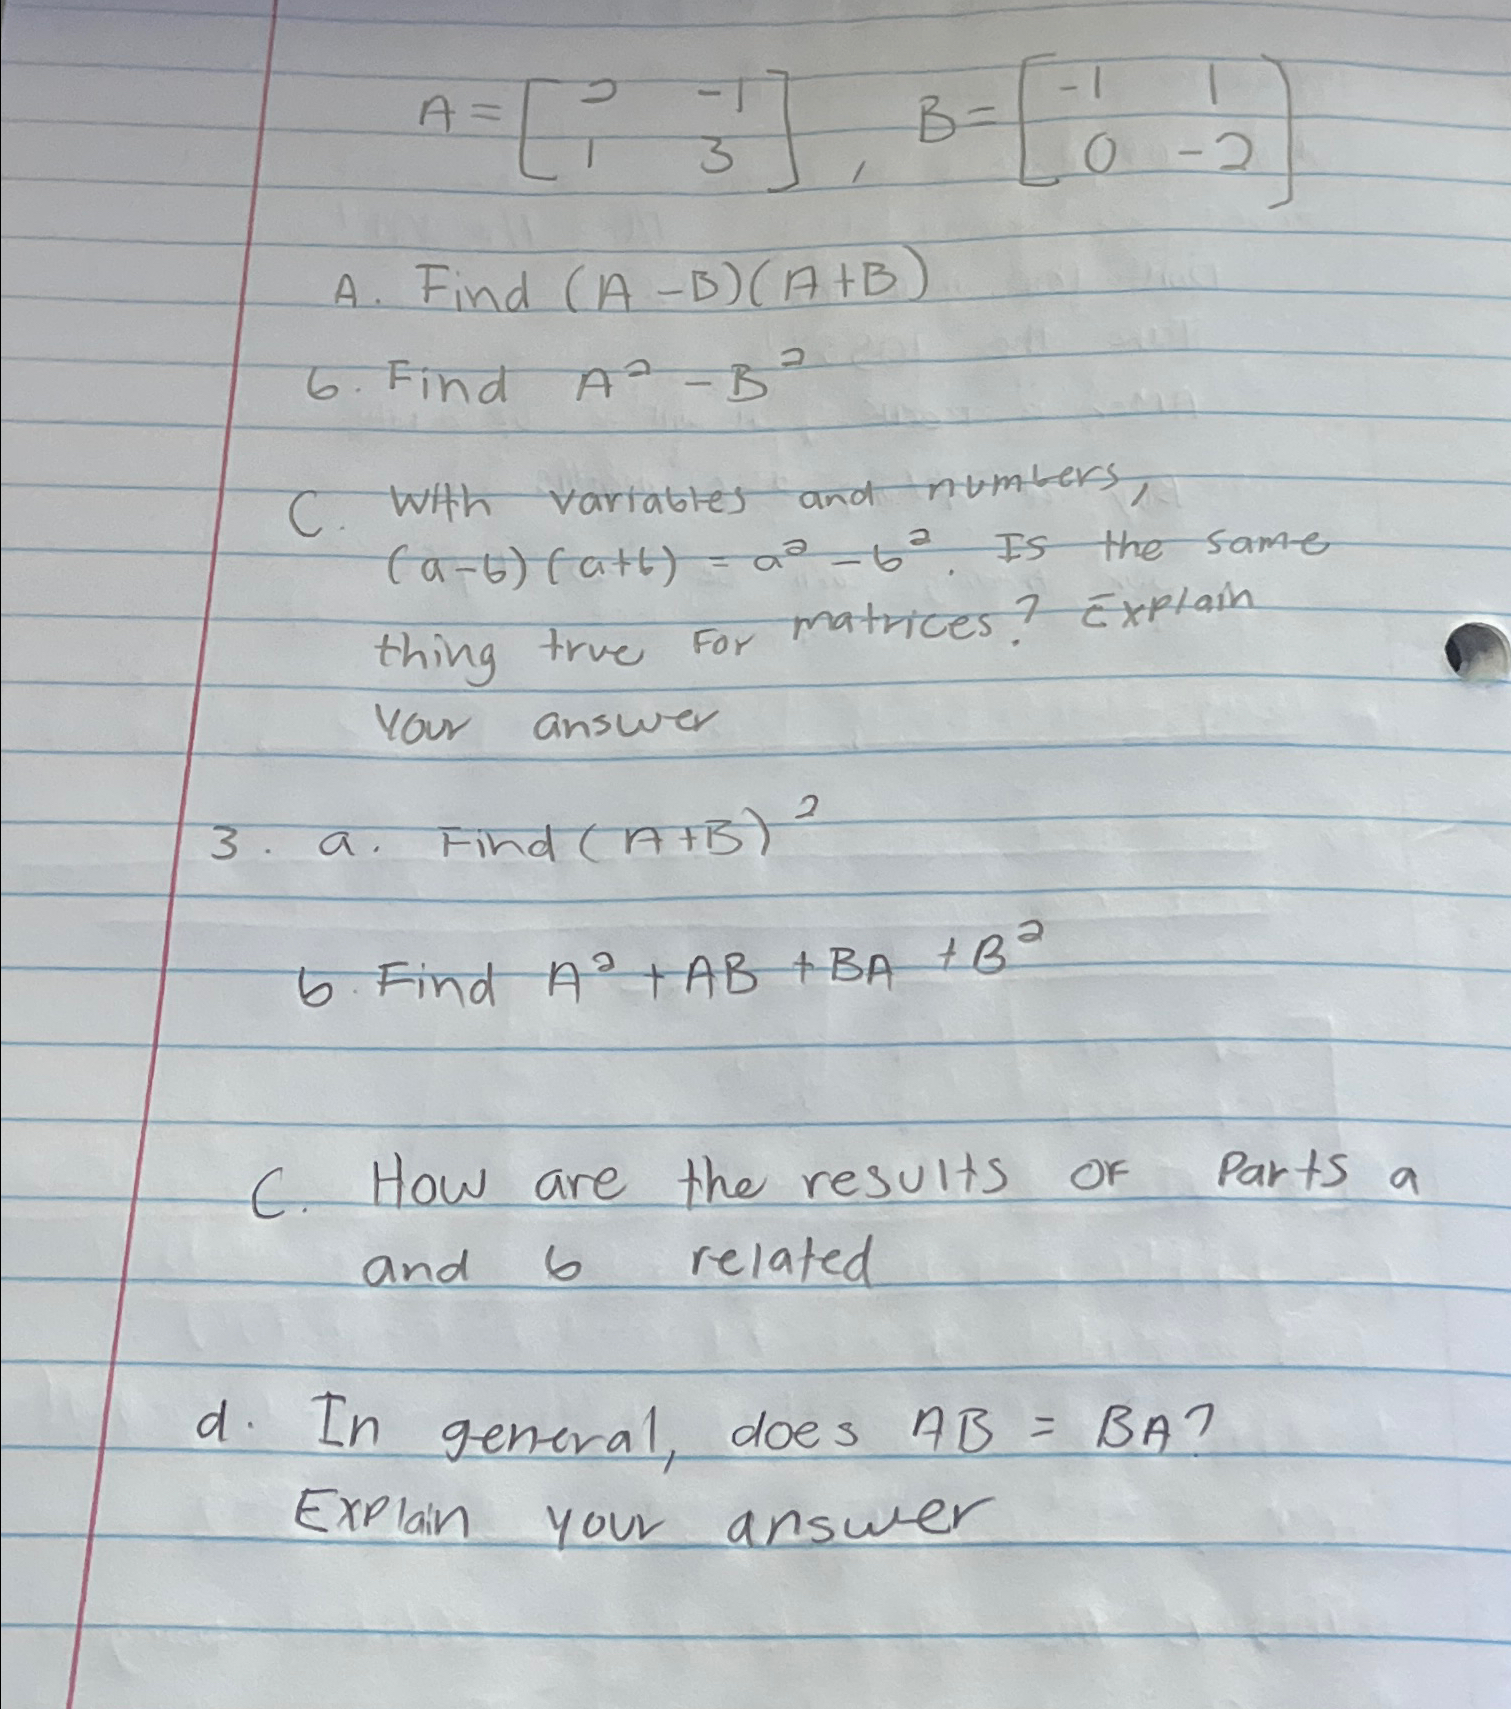 A = [ 2 -1 ] , B = [ -1 1 ]
[ 1 3 ] [ 0 -2 ]
A. Find (A - B)(A + B)
b. Find A² - B²
C. With variables and numbers,
(a-b)(a+b) = a² - b². Is the same
thing true For matrices? Explain
Your answer
3. a. Find (A+B)²
b. Find A² + AB + BA + B²
C. How are the results of Parts a
and b related
d. In general, does AB = BA?
Explain your answer